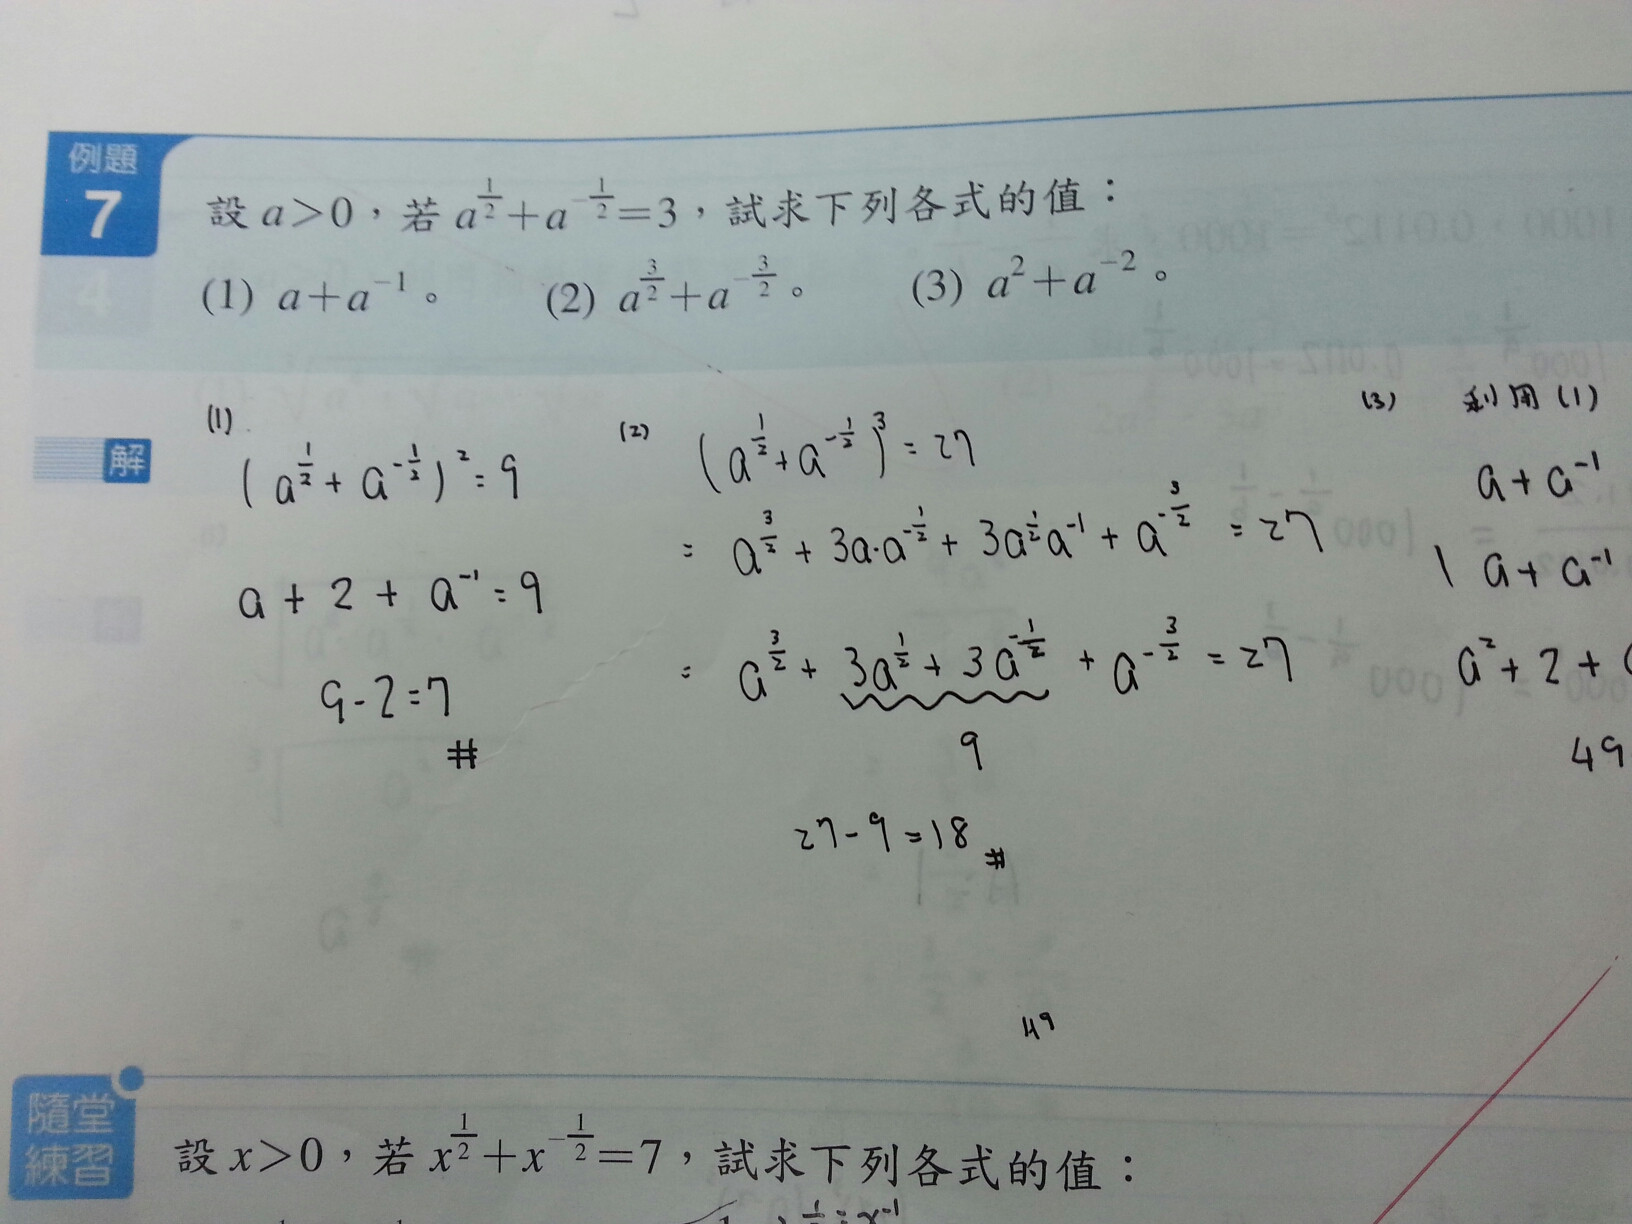 例題
7
設 a>0，若 a^{1/2}+a^{-1/2}=3，試求下列各式的值：
(1) a+a^{-1}。 (2) a^{3/2}+a^{-3/2}。 (3) a^2+a^{-2}。
解
(1)
(a^{1/2}+a^{-1/2})^2=9
a+2+a^{-1}=9
9-2=7
#
(2) (a^{1/2}+a^{-1/2})^3=27
= a^{3/2}+3a·a^{-1/2}+3a^{1/2}a^{-1}+a^{-3/2}=27
= a^{3/2}+3a^{1/2}+3a^{-1/2}+a^{-3/2}=27
9
27-9=18 #
(3) 利用(1)
a+a^{-1}
(a+a^{-1}
a^2+2+
49
49
隨堂
練習
設 x>0，若 x^{1/2}+x^{-1/2}=7，試求下列各式的值：